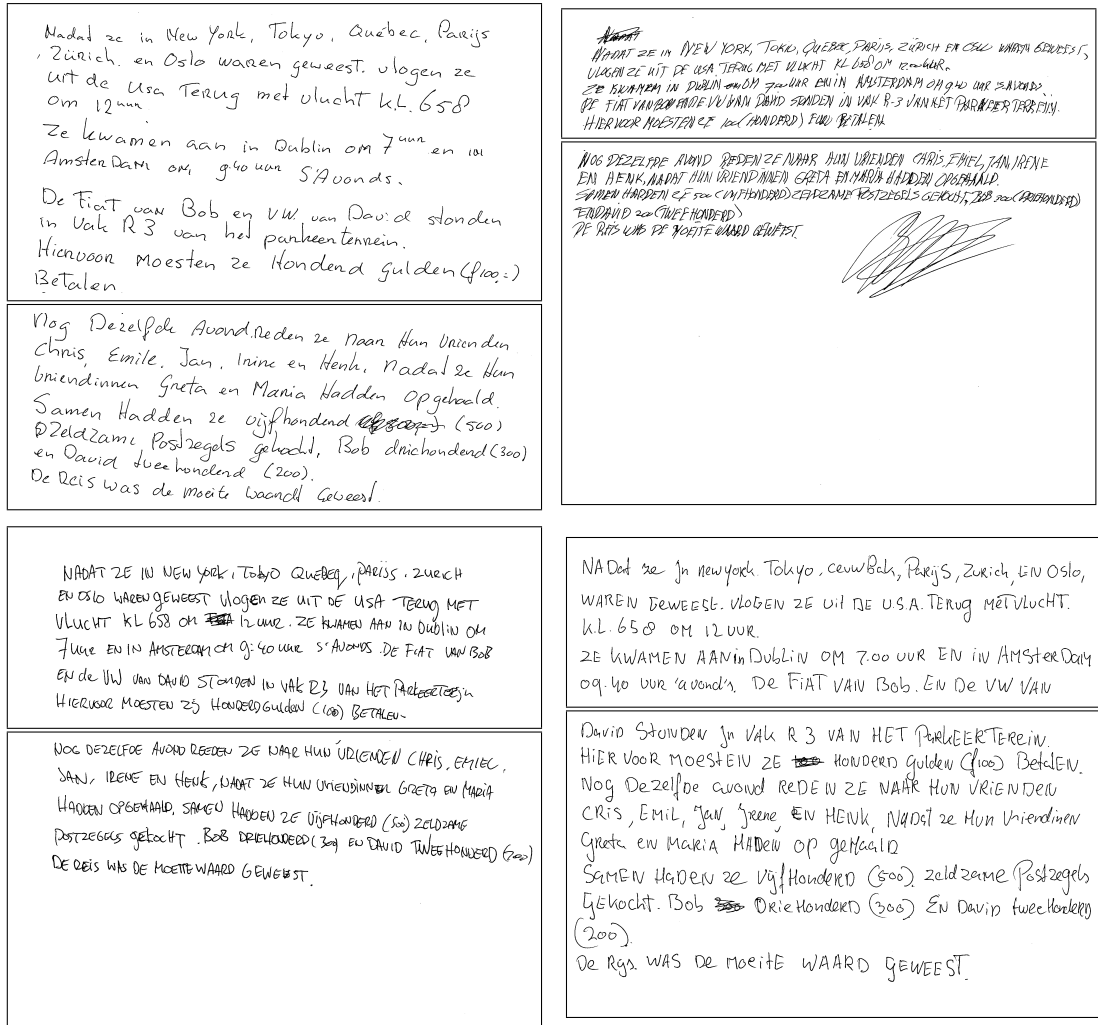 Nadat ze in New York, Tokyo, Québec, Parijs
, Zürich. en Oslo waren geweest. vlogen ze
uit de Usa Terug met vlucht K.L. 658
om 12 uur
Ze kwamen aan in Dublin om 7 uur en in
AmsterDam om 9:40 uur S'Avonds.
De Fiat van Bob en VW van David stonden
in Vak R 3 van het parkeerterrein.
Hiervoor Moesten ze Honderd gulden (f100,=)
Betalen
Nog Dezelfde Avond.Reden ze naar Hun Vrienden
Chris, Emile, Jan, Irine en Henk, Nadat ze Hun
vriendinnen Greta en Maria Hadden opgehaald.
Samen Hadden ze vijfhonderd (500)
Zeldzame Postzegels gekocht, Bob driehonderd (300)
en David tweehonderd (200).
De Reis was de moeite waardt Geweest.
NADAT ZE IN NEW YORK, TOKIO, QUEBEC, PARIJS, ZÜRICH EN OSLO WAREN GEWEEST,
VLOGEN ZE UIT DE USA TERUG MET VLUCHT KL 658 OM 12.00 UUR.
ZE KWAMEN IN DUBLIN OM 7.00 UUR EN IN AMSTERDAM OM 9.40 UUR SAVONDS.
DE FIAT VAN BOB EN DE VW VAN DAVID STONDEN IN VAK R-3 VAN HET PARKEERTERREIN.
HIERVOOR MOESTEN ZE 100 (HONDERD) BETALEN
NOG DEZELFDE AVOND REDEN ZE NAAR HUN VRIENDEN CHRIS, EMIEL, JAN, IRENE
EN HENK, NADAT HUN VRIENDINNEN GRETA EN MARIA HADDEN OPGEHAALD.
SAMEN HADDEN ZE 500 (VIJFHONDERD) ZELDZAME POSTZEGELS GEKOCHT, BOB 300 (DRIEHONDERD)
EN DAVID 200 (TWEEHONDERD)
DE REIS WAS DE MOEITE WAARD GEWEEST.
NADAT ZE IN NEW YORK, TOKYO QUEBEQ, PARIJS, ZURICH
EN OSLO WAREN GEWEEST VLOGEN ZE UIT DE USA TERUG MET
VLUCHT KL 658 OM 12 UUR. ZE KWAMEN AAN IN DUBLIN OM
7 uur EN IN AMSTERDAM OM 9:40 UUR S'AVONDS. DE FIAT VAN BOB
EN de VW VAN DAVID STONDEN IN VAK R3 VAN HET
HIERVOOR MOESTEN ZIJ HONDERD GULDEN (100) BETALEN-
NOG DEZELFDE AVOND REEDEN ZE NAAR HUN VRIENDEN CHRIS, EMIEL,
JAN, IRENE EN HENK, NADAT ZE HUN VRIENDINNEN GRETA EN MARIA
HADDEN OPGEHAALD, SAMEN HADDEN ZE VIJFHONDERD (500) ZELDZAME
POSTZEGELS GEKOCHT. BOB DRIEHONDERD (300) EN DAVID TWEEHONDERD (200)
DE REIS WAS DE MOEITE WAARD GEWEEST.
NADat ze In newyork Tokyo, ceuwBak, ParijS, Zurich, EN Oslo,
WAREN GEWEEST. VLOGEN ZE uit DE U.S.A. TERug MET VLUCHT.
K.L. 658 OM 12 UUR.
ZE KWAMEN AAN in Dublin OM 7.00 UUR EN in AMSterDam
09.40 uur 'avond's. De FiAT VAN Bob. EN De VW VAN
David STONDEN In VAK R 3 VAN HET ParKEERTEREIN.
HiER VOOR MOESTEN ZE HONDERD gulden (f100) BetALEN.
NOG DezElfde avond REDEN ZE NAAR HUN VRIENDEN
CRIS, EMIL, Jan, Irene, EN HENK, NADat ze Hun Vriendinen
Greta en MARIA HADEN op geHAAlD
SaMEN HaDEN ze VijfHonderD (500) zeldzame Postzegels
GEKocht. Bob DRieHonderD (300) EN David tweeHonderD
(200).
De Rijs. WAS De MoeitE WAARD GEWEEST.